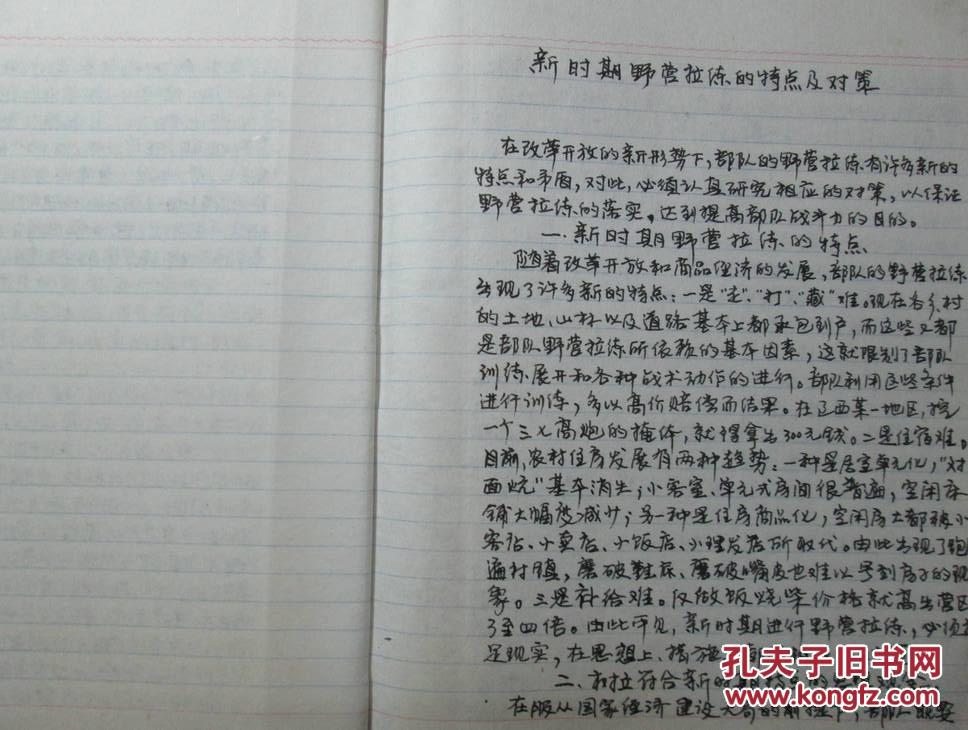 新时期野营拉练的特点及对策
在改革开放的新形势下,部队的野营拉练有许多新的
特点和矛盾,对此,必须认真研究相应的对策,以保证
野营拉练的落实。达到提高部队战斗力的目的。
一.新时期野营拉练的特点
随着改革开放和商品经济的发展,部队的野营拉练
出现了许多新的特点:一是“走”、“打”、“藏”难。现在各乡、村
的土地、山林以及道路基本上都承包到户,而这些又都
是部队野营拉练所依赖的基本因素,这就限制了部队
训练展开和各种战术动作的进行。部队利用这些条件
进行训练,多以高价赔偿而结果。在辽西某一地区,挖
一个三七高炮的掩体,就得拿出300元钱。二是住宿难。
目前,农村住房发展有两种趋势:一种是居室单元化,“对
面炕”基本消失,小客室、单元式房间很普遍,空闲床
铺大幅度减少;另一种是住房商品化,空闲房大都被小
客店、小卖店、小饭店、小理发店所取代。由此出现了跑
遍村镇,磨破鞋底、磨破嘴皮也难以号到房子的现
象。三是补给难。仅做饭烧柴价格就高出营区
至四倍。由此可见,新时期进行野营拉练,必须
足现实,在思想上、措施
二、符合新时期
在服从国家经济建设大局的前提下,部队既要
孔夫子旧书网
www.kongfz.com